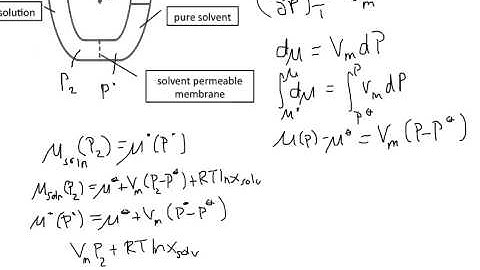 solution
pure solvent
P₂ P•
solvent permeable
membrane
(∂P)T Vm
dμ = VmdP
∫μ°μ dμ = ∫P°P VmdP
μ(P) - μ° = Vm(P-P°)
μsoln(P₂) = μ•(P•)
μsoln(P₂) = μ° + Vm(P₂-P°) + RTlnxsolv
μ•(P•) = μ° + Vm(P•-P°)
VmP₂ + RTlnxsolv